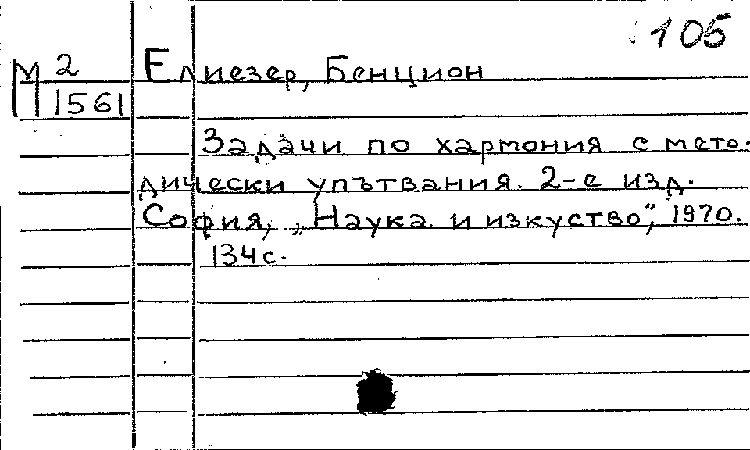 105
М 2
1561
Елиезер, Бенцион
Задачи по хармония с мето-
дически упътвания. 2-е изд.
София, „Наука и изкуство", 1970.
134 с.